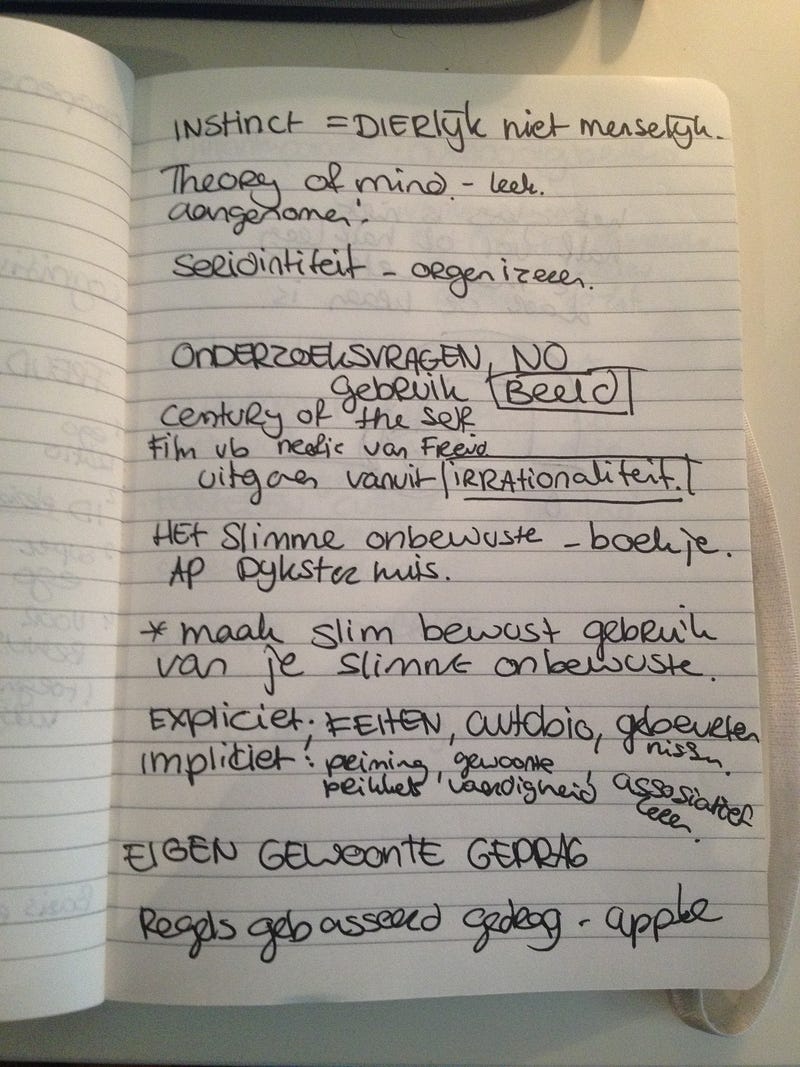 INSTINCT = DIERLIJK niet menselijk.
Theory of mind. - leek.
aangenomen!
SERIDINTITEIT - ORGANIZEREN.
ONDERZOEKSVRAGEN, NO
gebruik BEELD
CENTURY of the self
Film vb neefje van Freud
uitgaan vanuit IRRATIONALITEIT.
HET SLIMME ONBEWUSTE - boekje.
AP DYKSTERHUIS.
* maak slim bewust gebruik
van je slimme onbewuste.
EXPLICIET: FEITEN, autobio, gebeurtenissen.
IMPLICIET: priming, gewoonte,
prikkels, vaardigheid, assosiatief
leren.
EIGEN GEWOONTE GEDRAG
Regels gebasseerd gedrag - apple